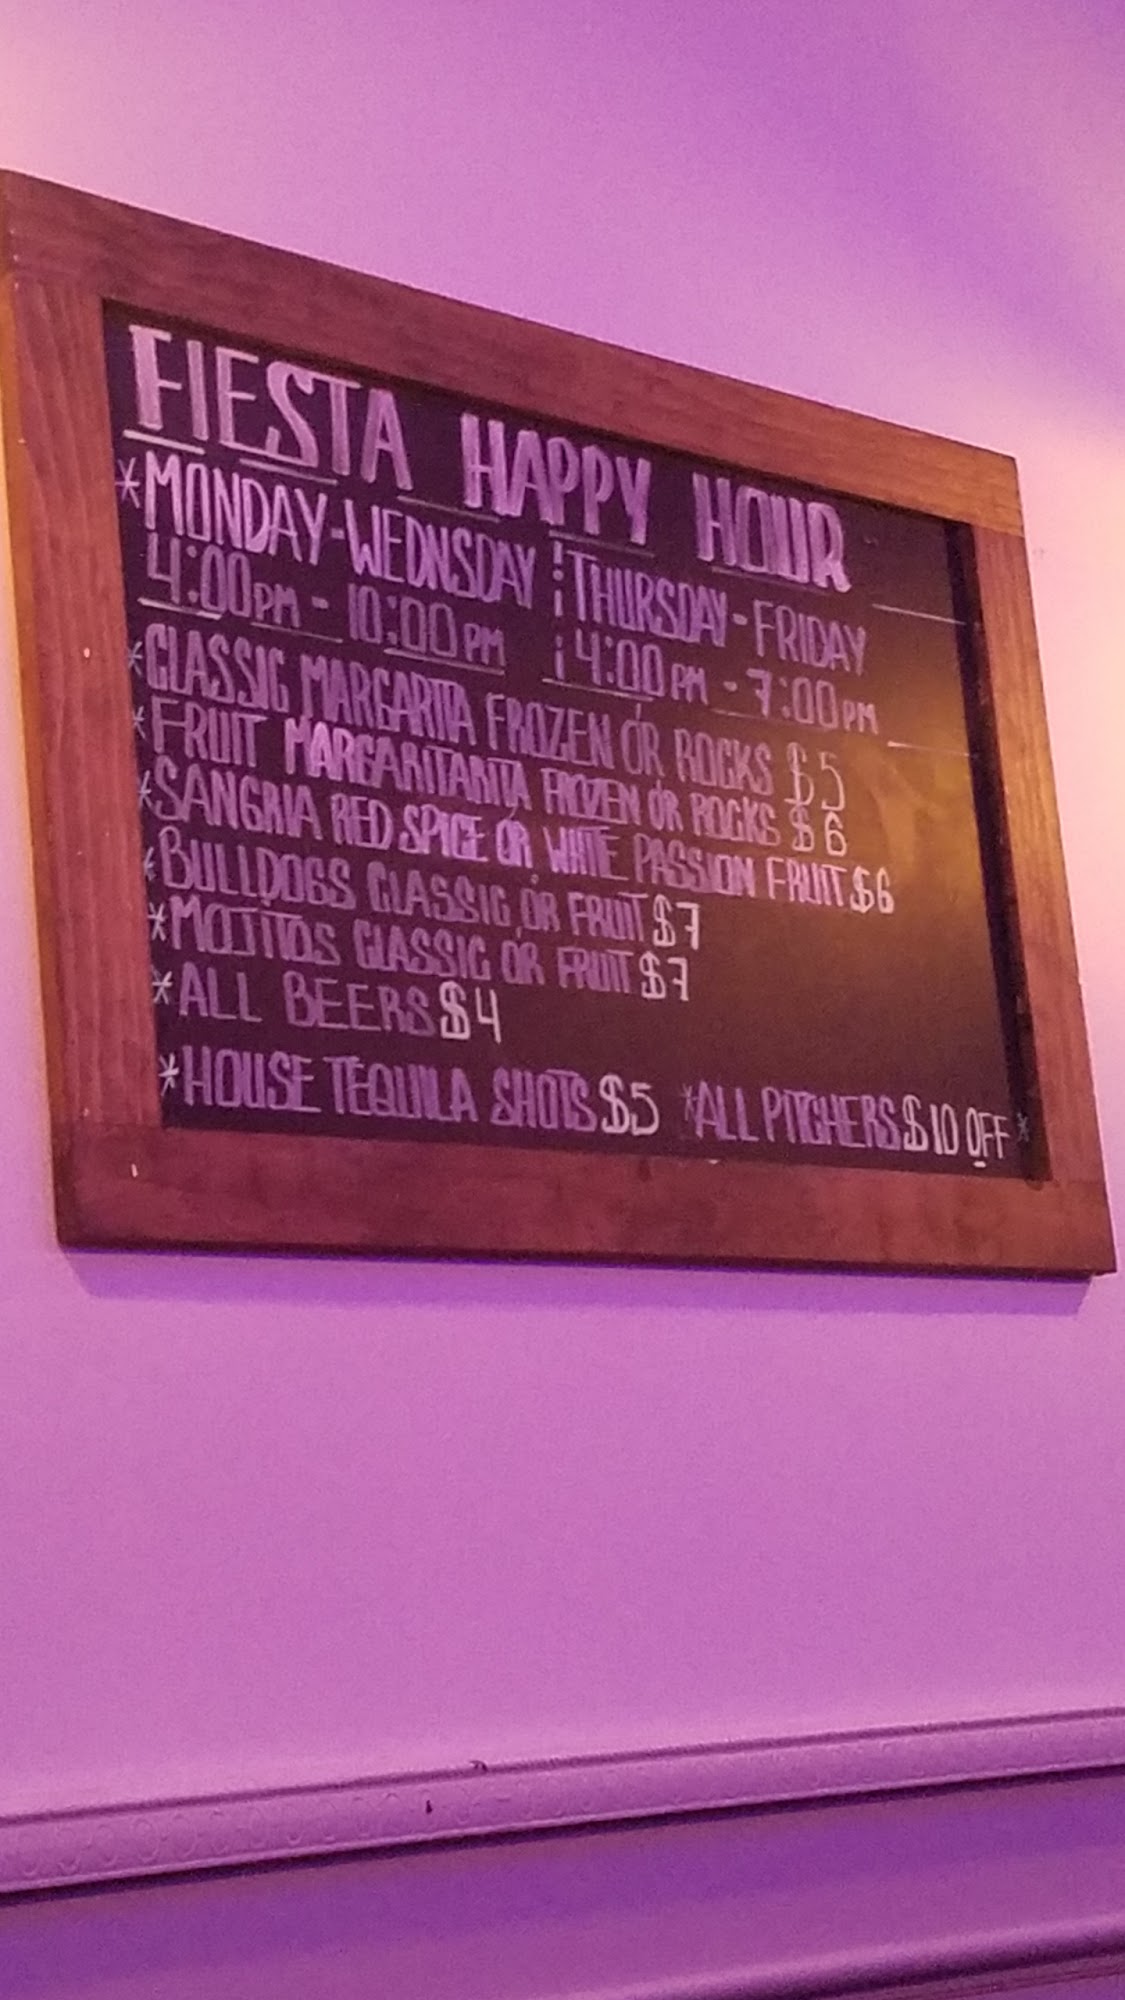 FIESTA HAPPY HOUR
*MONDAY-WEDNSDAY THURSDAY-FRIDAY
4:00PM - 10:00PM 4:00PM - 7:00PM
*CLASSIC MARGARITA FROZEN OR ROCKS $5
*FRUIT MARGARITARITA FROZEN OR ROCKS $6
*SANGRIA RED SPICE OR WHITE PASSION FRUIT $6
*BULLDOGS CLASSIC OR FRUIT $7
*MOJITOS CLASSIC OR FRUIT $7
*ALL BEERS $4
*HOUSE TEQUILA SHOTS $5 *ALL PITCHERS $10 OFF*